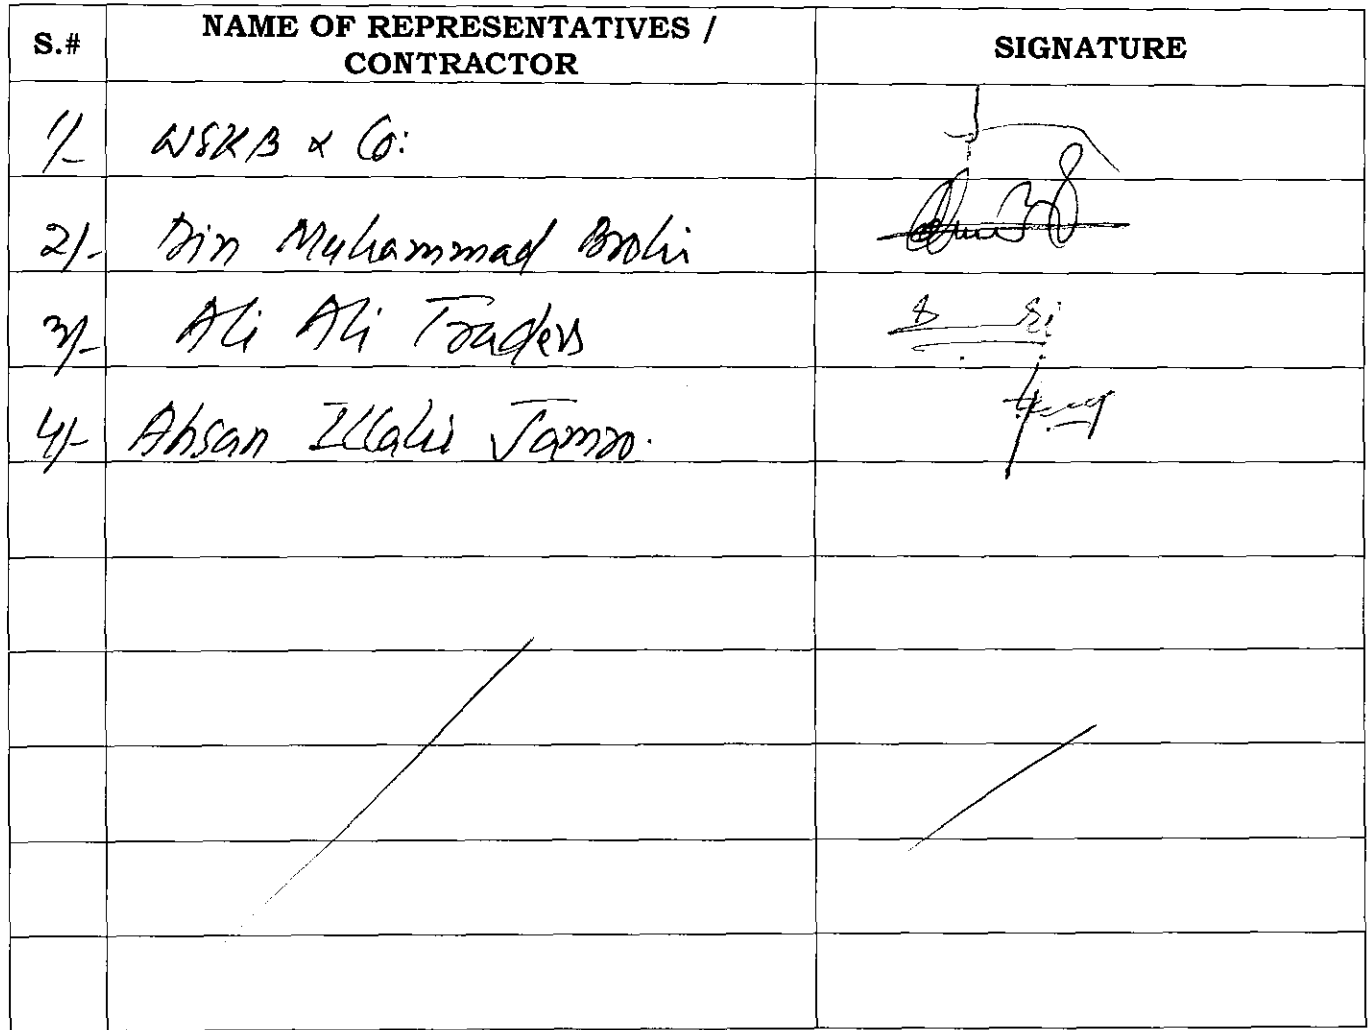 S.# NAME OF REPRESENTATIVES / CONTRACTOR SIGNATURE
1/- WSKB & Co:
2/- Din Muhammad Brohi
3/- Ali Ali Traders
4/- Ahsan Illahi Jamro.